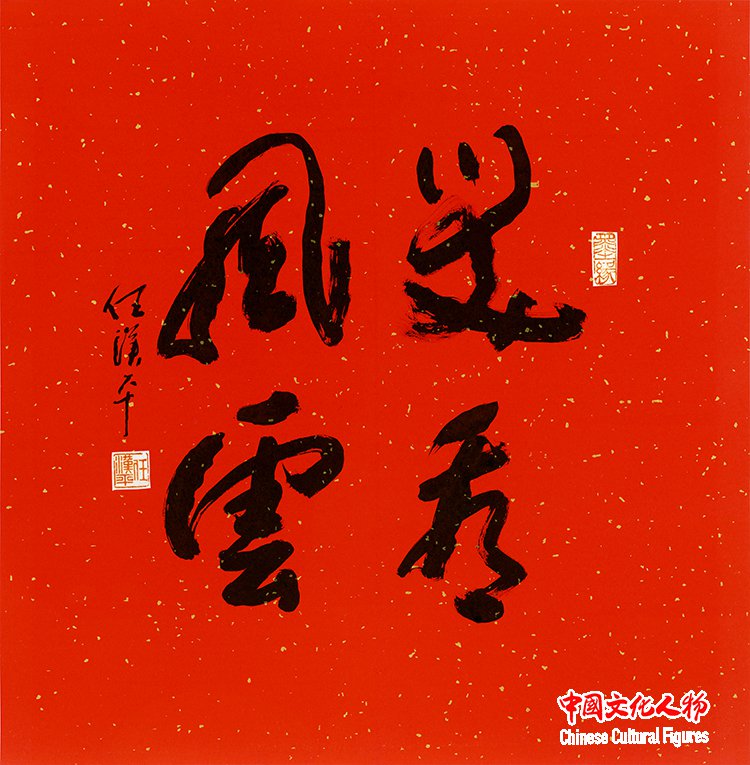 笑看
風雲
任漢平
任漢平
中國文化人物
Chinese Cultural Figures